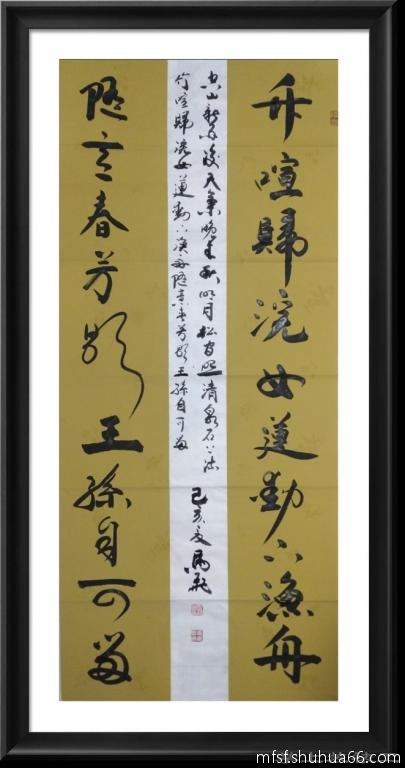 竹喧歸浣女蓮動下漁舟
空山新雨後天氣晚来秋明月松间照清泉石上流
竹喧歸浣女蓮動下漁舟隨意春芳歇王孫自可留
己亥夏 馬飛
隨意春芳歇王孫自可留
mfsf.shuhua66.com